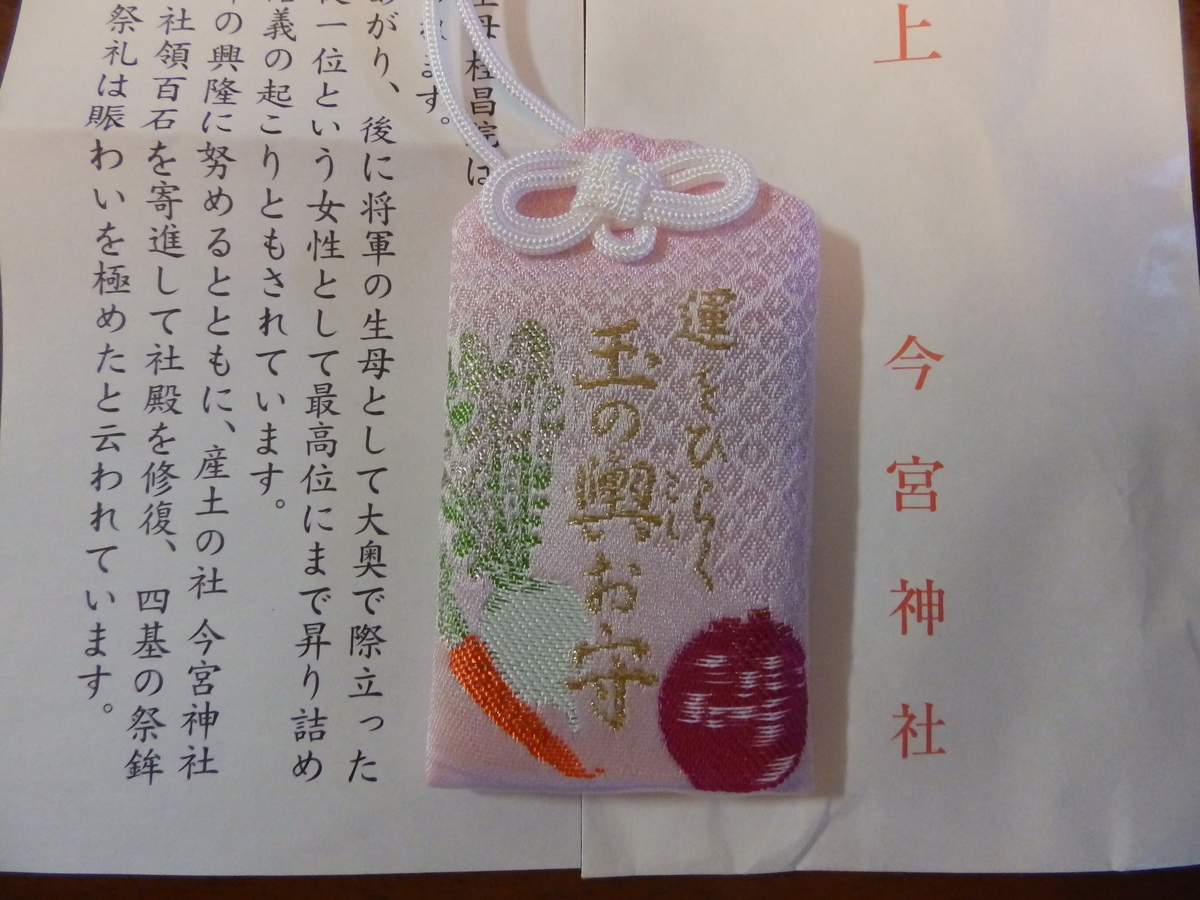 上
今宮神社
運をひらく
玉の輿お守
こし
生母 桂昌院は
れます。
あがり、後に将軍の生母として大奥で際立った
一位という女性として最高位にまで昇り詰め
義の起こりともされています。
の興隆に努めるとともに、産土の社 今宮神社
社領百石を寄進して社殿を修復、四基の祭鉾
祭礼は賑わいを極めたと云われています。